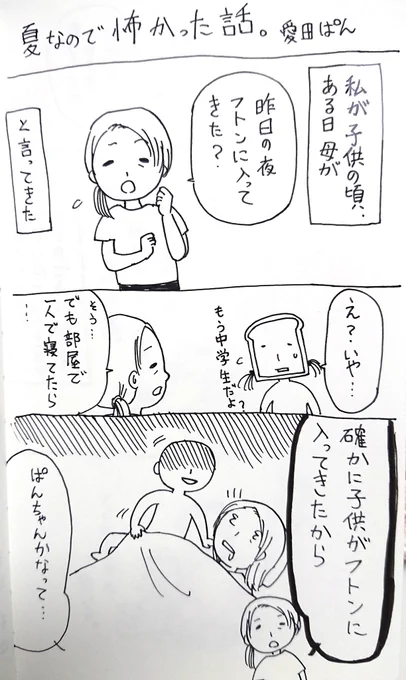 夏なので怖かった話。愛田ぱん
私が子供の頃、
ある日 母が
昨日の夜
フトンに入って
きた？
と言ってきた
え？いや…
もう中学生だよ？
そう…
でも部屋で
一人で寝てたら
…
確かに子供がフトンに
入ってきたから
ぱんちゃんかなって…